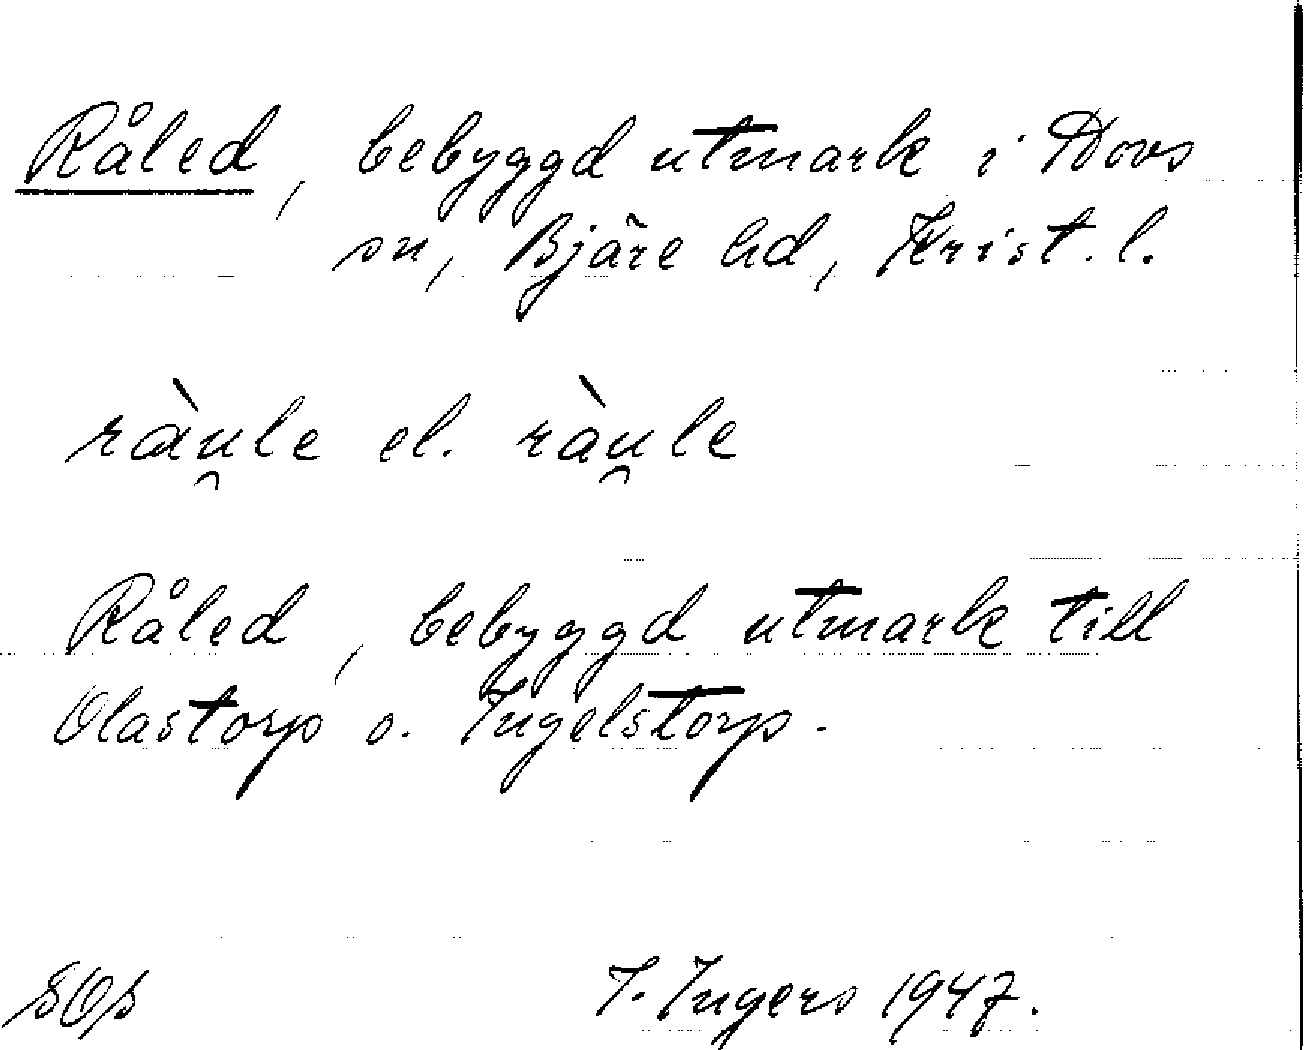 Råled, bebyggd utmark i Hovs
sn, Bjäre hd, Krist. l.
ràu̯le el. ràu̯le
Råled, bebyggd utmark till
Olastorp o. Ingelstorp.
SOp I. Ingers 1947.